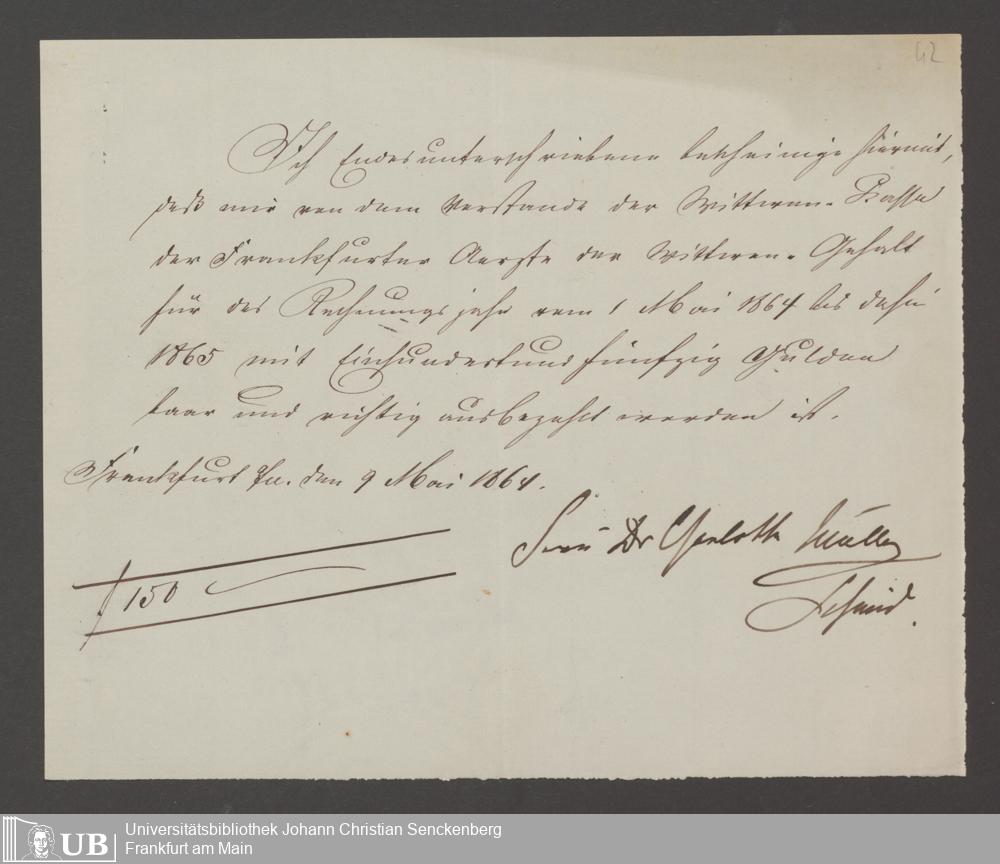 42
Ich Endesunterschriebene bescheinige hiermit,
daß mir von dem Vorstande der Wittwen-Kasse
der Frankfurter Aerzte der Wittwen-Gehalt
für das Rechnungsjahr vom 1 Mai 1864 bis dahin
1865 mit Einhundertundfünfzig Gulden
baar und richtig ausbezahlt worden ist.
Frankfurt den 9 Mai 1864.
Frau Dr Charlotte Müller
Schmid.
f 150
UB
Universitätsbibliothek Johann Christian Senckenberg
Frankfurt am Main